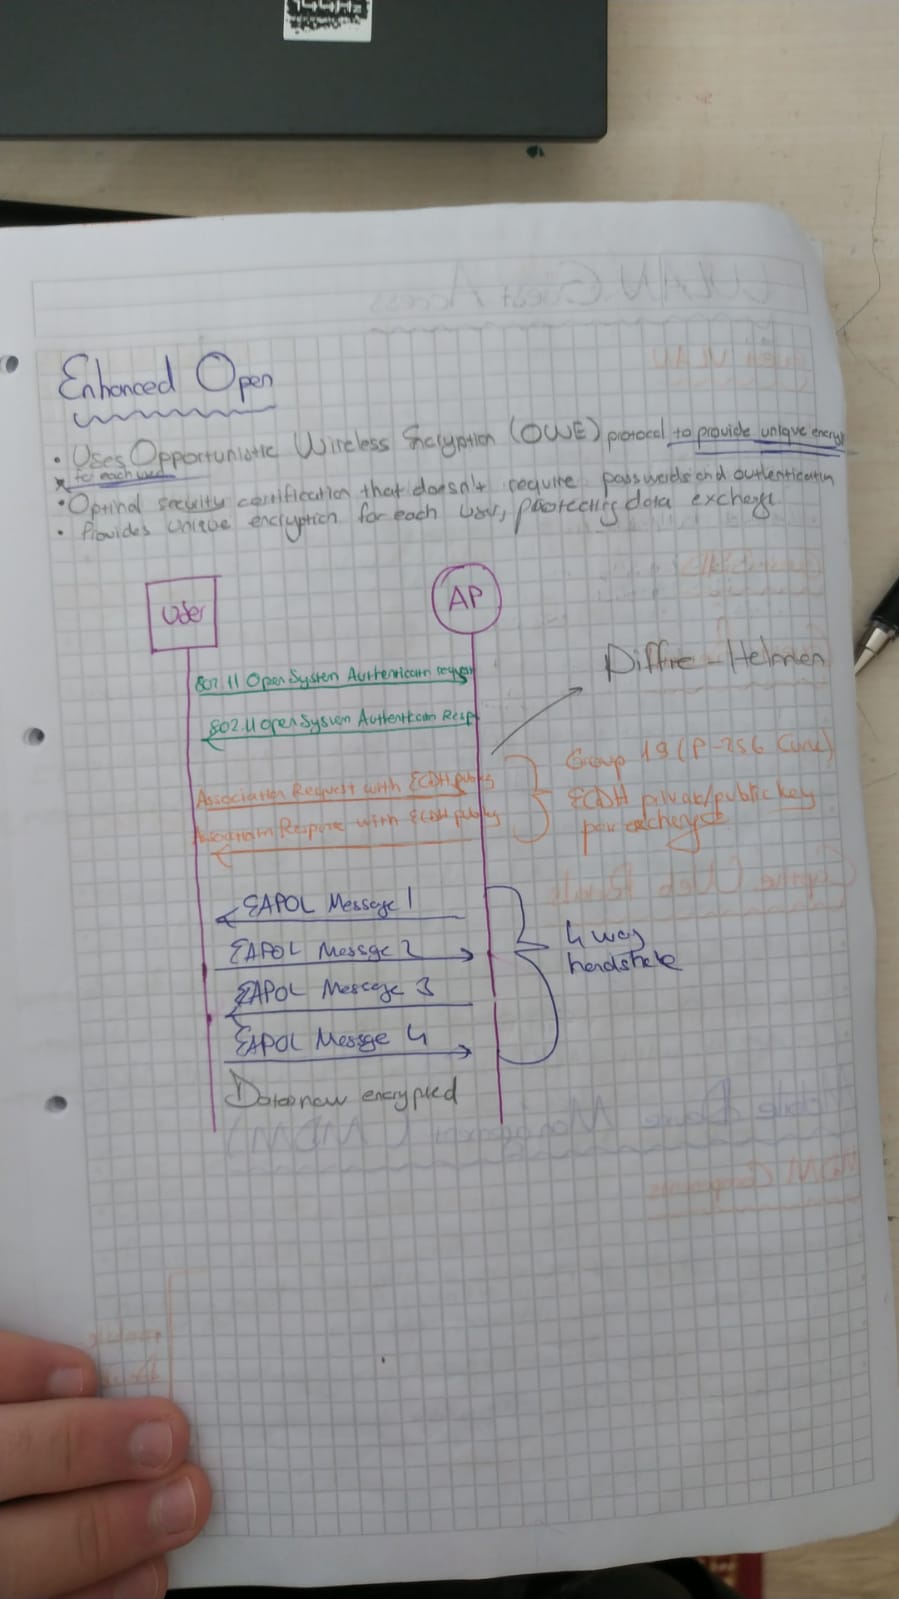 144Hz
Enhanced Open
• Uses Opportunistic Wireless Encryption (OWE) protocol to provide unique encryp
for each user
• Optinal security certification that doesn't require passwords and authentication
• Provides unique encryption for each user, protecting data exchange
User
AP
802.11 Open System Authentication request
802.11 Open System Authentication Resp
Diffie-Helmen
Association Request with ECDH public
Association Response with ECDH public
Group 19 (P-256 Curve)
ECDH private/public key
pair exchange
EAPOL Message 1
EAPOL Message 2
EAPOL Message 3
EAPOL Message 4
4 way
handshake
Data now encrypted